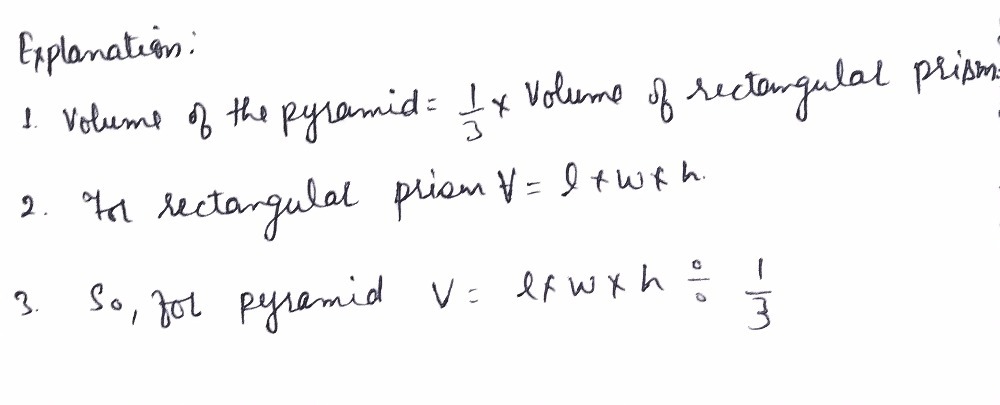 Explanation:
1. Volume of the pyramid = 1/3 × Volume of rectangular prism.
2. For rectangular prism V = l × w × h.
3. So, for pyramid V = l × w × h ÷ 1/3